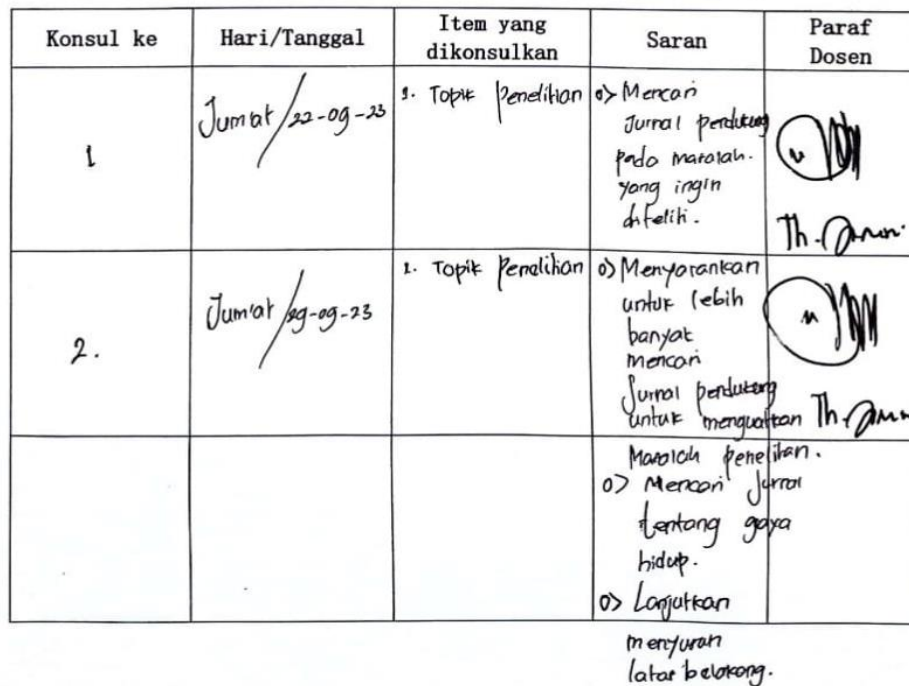 Konsul ke
Hari/Tanggal
Item yang
dikonsulkan
Saran
Paraf
Dosen
1
Jumat/22-09-23
1. Topik Penelitian
o> Mencari
Jurnal pendukung
pada masalah.
yang ingin
diteliti.
Th.
2.
Jum'at/29-09-23
1. Topik Penelitian
o> Menyarankan
untuk lebih
banyak
mencari
Jurnal pendukung
untuk menguatkan
Masalah penelitian.
Th.
o> Mencari Jurnal
tentang gaya
hidup.
o> Lanjutkan
menyusun
latar belakang.